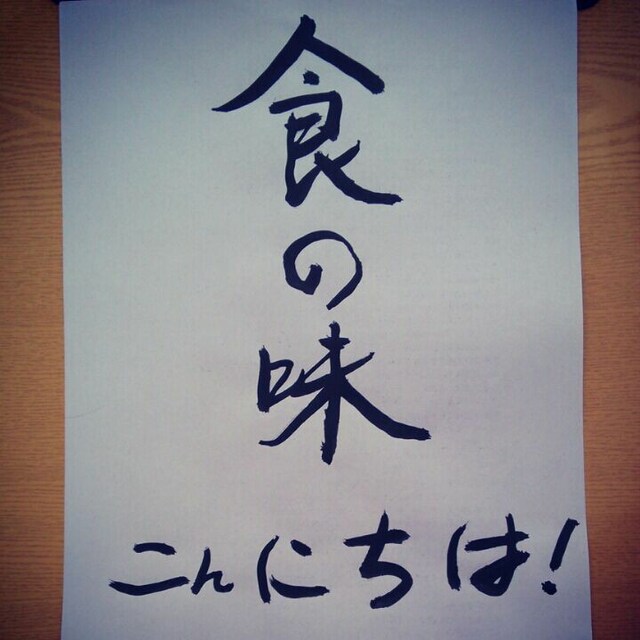 食の味
こんにちは!